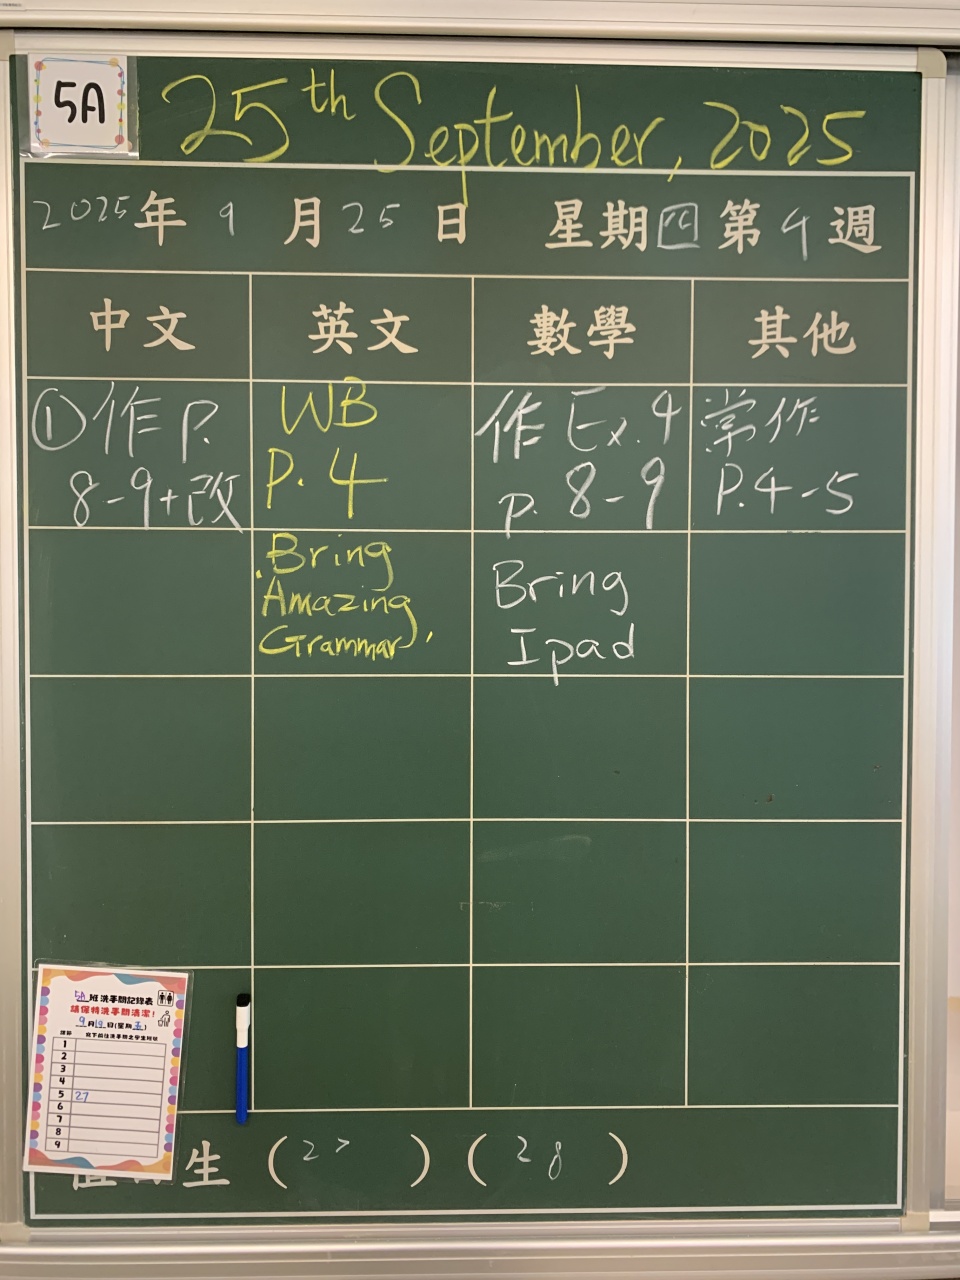 5A
25th September, 2025
2025年 9 月 25 日 星期四 第 4 週
中文 英文 數學 其他
①作 P.
8-9+改
WB
P.4
作 Ex.4
p. 8-9
常作
P.4-5
Bring
Amazing
Grammar,
Bring
Ipad
5A 班洗手間記錄表
請保持洗手間清潔!
9月19日(星期五)
課節
1
2
3
4
5 27
6
7
8
9
生 (27) (28)